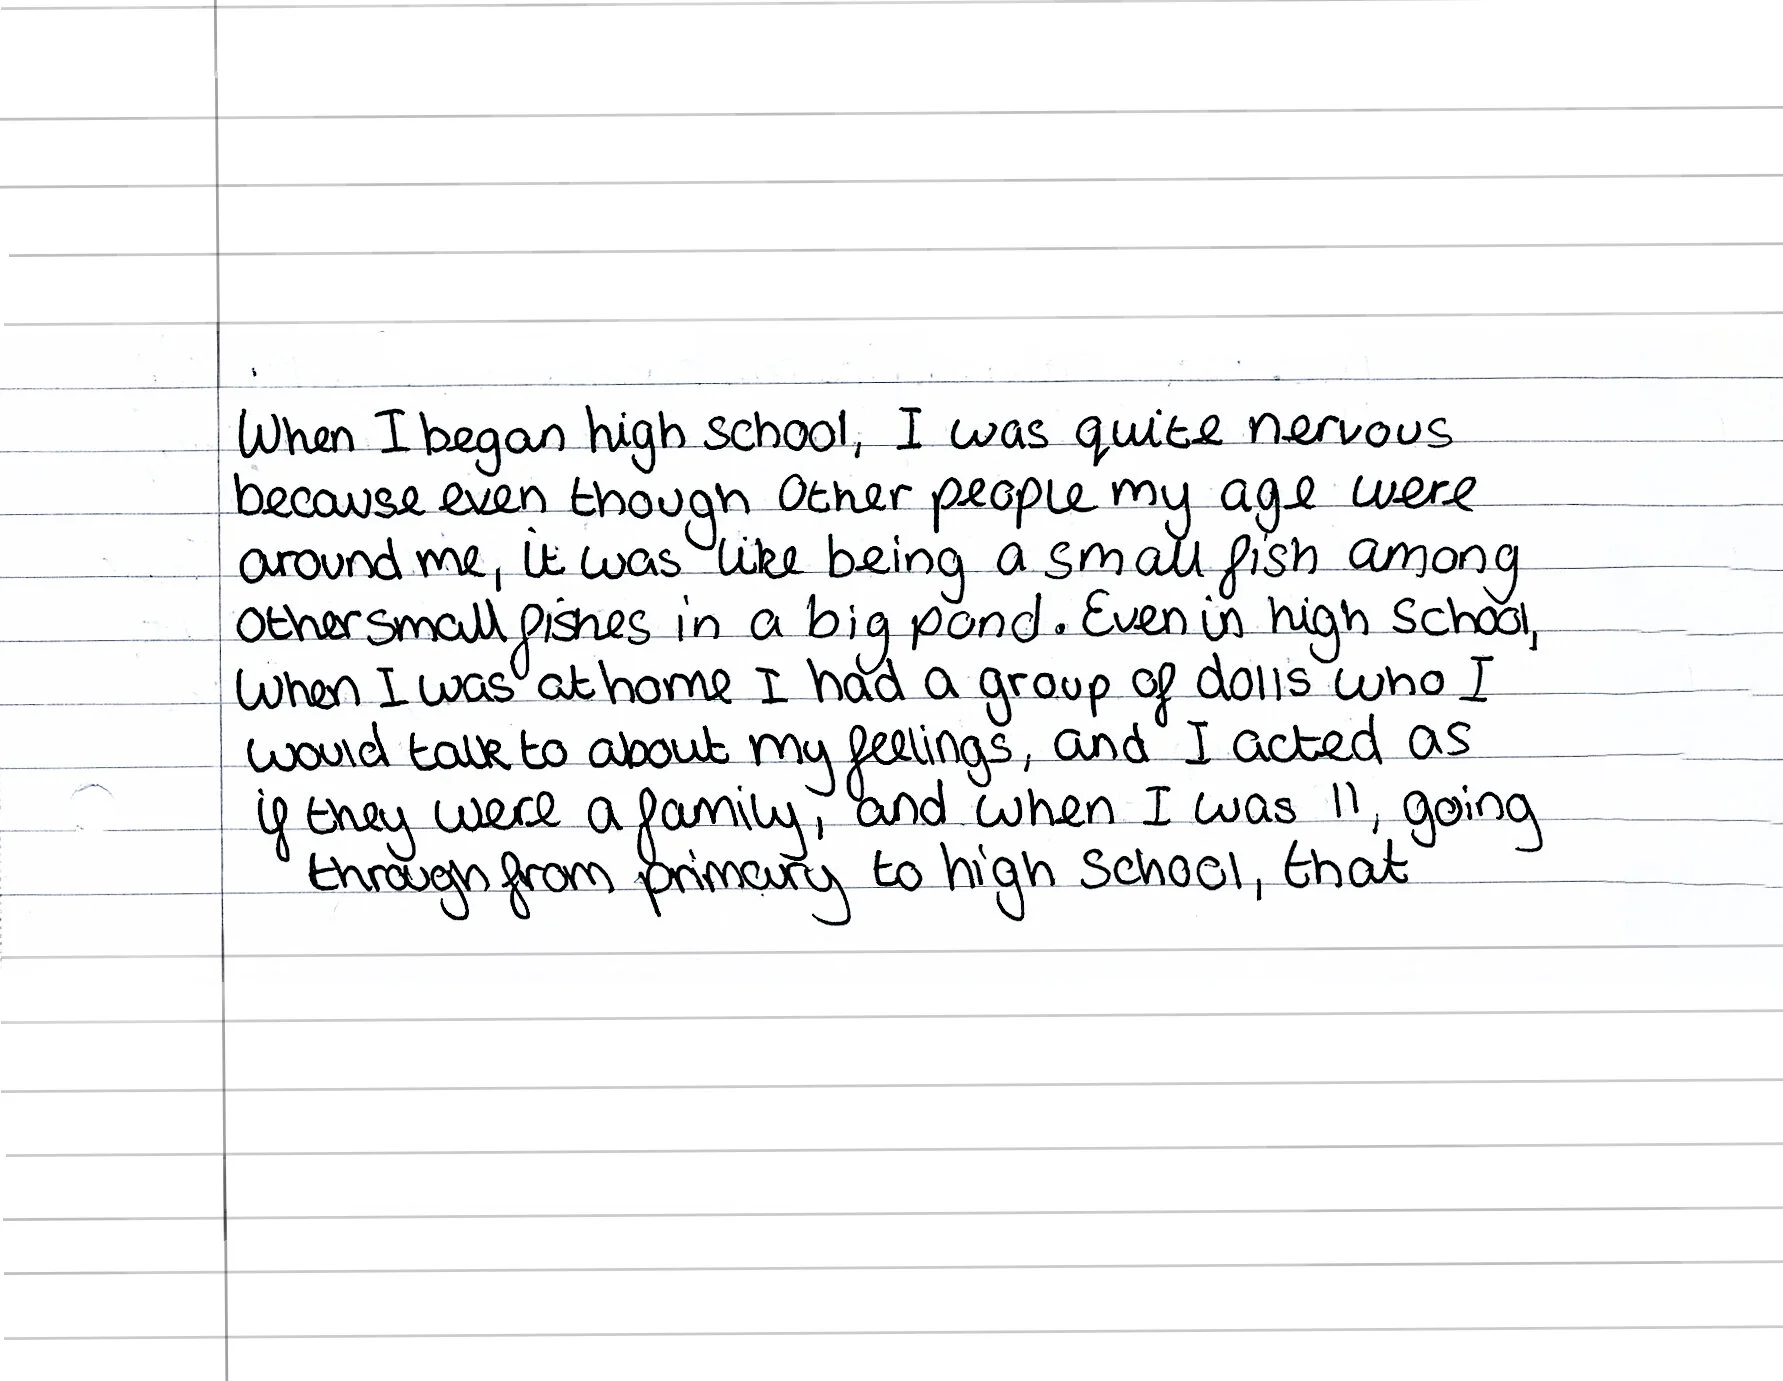 When I began high school, I was quite nervous
because even though other people my age were
around me, it was like being a small fish among
other small fishes in a big pond. Even in high school,
when I was at home I had a group of dolls who I
would talk to about my feelings, and I acted as
if they were a family, and when I was 11, going
through from primary to high school, that